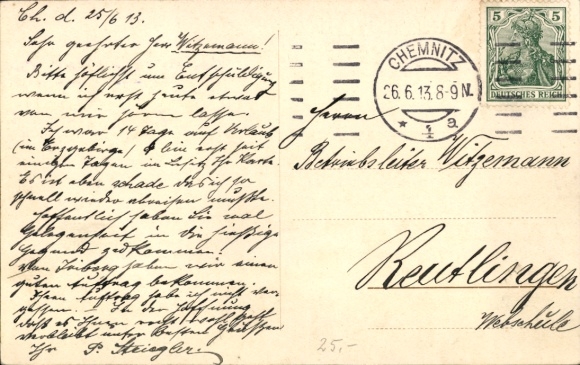 Ch. d. 25/6 13.
Sehr geehrter Herr Witzemann!
Bitte höflichst um Entschuldigung
wenn ich erst heute etwas
von mir hören lasse.
Ich war 14 Tage auf Urlaub
(im Erzgebirge) & bin erst seit
einigen Tagen im Besitz Ihr. Karte.
Es ist eben schade das ich so
schnell wieder abreisen mußte.
Hoffentlich haben Sie mal
Gelegenheit in die hiesige
Gegend zu kommen.
Von haben wir einen
guten Auftrag bekommen.
Ihren Auftrag habe ich nicht ver-
gessen. — In der Hoffnung
daß es Ihnen recht geht
verbleibt unter besten Grüssen
Ihr P. Steigler.
CHEMNITZ
26.6.13.8-9N.
* 1 a
5 5
DEUTSCHES REICH
Herrn
Betriebsleiter Witzemann
Reutlingen
Webschule
25,-